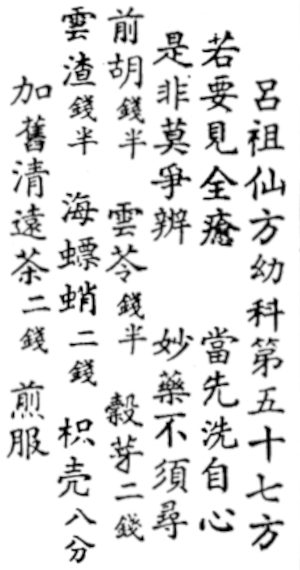 呂祖仙方幼科第五十七方
若要見全癒　當先洗自心
是非莫爭辨　妙藥不須尋
前胡錢半　雲苓錢半　穀芽二錢
雲渣錢半　海螵蛸二錢　枳壳八分
加舊清遠茶二錢　煎服